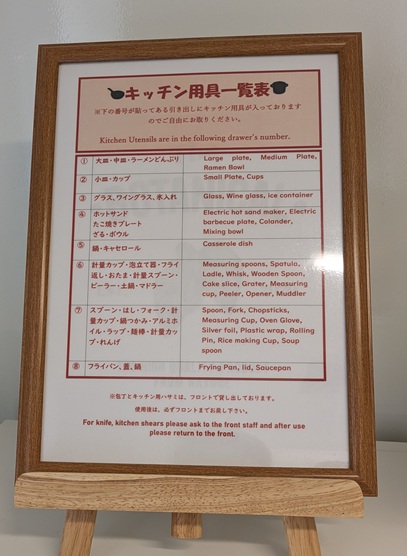 キッチン用具一覧表
※下の番号が貼ってある引き出しにキッチン用具が入っております
のでご自由にお取りください。
Kitchen Utensils are in the following drawer's number.
① 大皿・中皿・ラーメンどんぶり Large plate, Medium Plate,
Ramen Bowl
② 小皿・カップ Small Plate, Cups
③ グラス、ワイングラス、氷入れ Glass, Wine glass, ice container
④ ホットサンド Electric hot sand maker, Electric
たこ焼きプレート barbecue plate, Colander,
ざる・ボウル Mixing bowl
⑤ 鍋・キャセロール Casserole dish
⑥ 計量カップ・泡立て器・フライ Measuring spoons, Spatula,
返し・おたま・計量スプーン・ Ladle, Whisk, Wooden Spoon,
ピーラー・土鍋・マドラー Cake slice, Grater, Measuring
cup, Peeler, Opener, Muddler
⑦ スプーン・はし・フォーク・計 Spoon, Fork, Chopsticks,
量カップ・鍋つかみ・アルミホ Measuring Cup, Oven Glove,
イル・ラップ・麺棒・計量カッ Silver foil, Plastic wrap, Rolling
プ・れんげ Pin, Rice making Cup, Soup
spoon
⑧ フライパン、蓋、鍋 Frying Pan, lid, Saucepan
※包丁とキッチン用ハサミは、フロントで貸し出しております。
使用後は、必ずフロントまでお戻し下さい。
For knife, kitchen shears please ask to the front staff and after use
please return to the front.